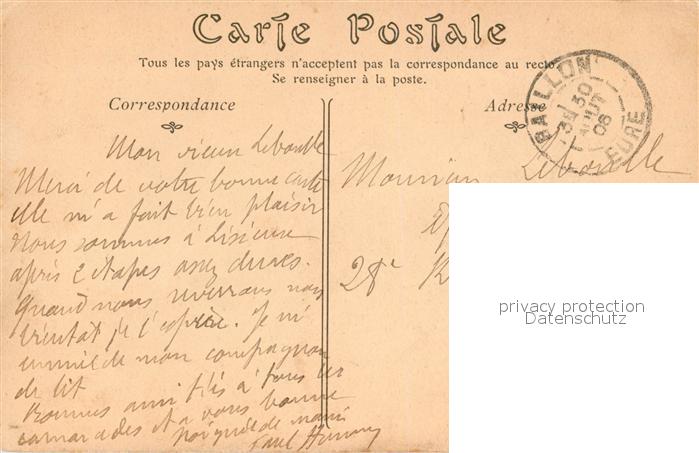 Carte Postale
Tous les pays étrangers n'acceptent pas la correspondance au recto
Se renseigner à la poste.
Correspondance
Adresse
30 AOUT 08
EURE
Mon vieux Leboulle
Merci de votre bonne carte
elle m'a fait bien plaisir
Nous sommes à Lisieux
après 2 étapes assez dures.
Quand nous reverrons nous
bientot je l'espère. Je m'
ennuie de mon compagnon
de lit
Bonnes amitiés à tous les
camarades et a vous bonne
poignée de main
Paul
Monsieur Leboulle
28e
privacy protection
Datenschutz